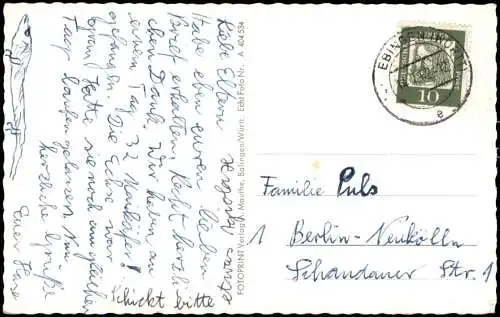 Liebe Eltern
Habe eben euren lieben
Brief erhalten. Recht herzli
chen Dank. Wir haben an
einem Tag 32 Maikäfer
gefangen. Die Echse war
Hatte sie noch am gleichen
Tag laufen gelassen. Nun
herzliche Grüße
Euer
Schickt bitte
FOTOPRINT Verlag A. Mauthe, Balingen/Württ. Echt Foto Nr. A 404 534
EBINGEN (WÜRTT)
e
10
Familie Puls
1 Berlin-Neukölln
Schandauer Str. 1